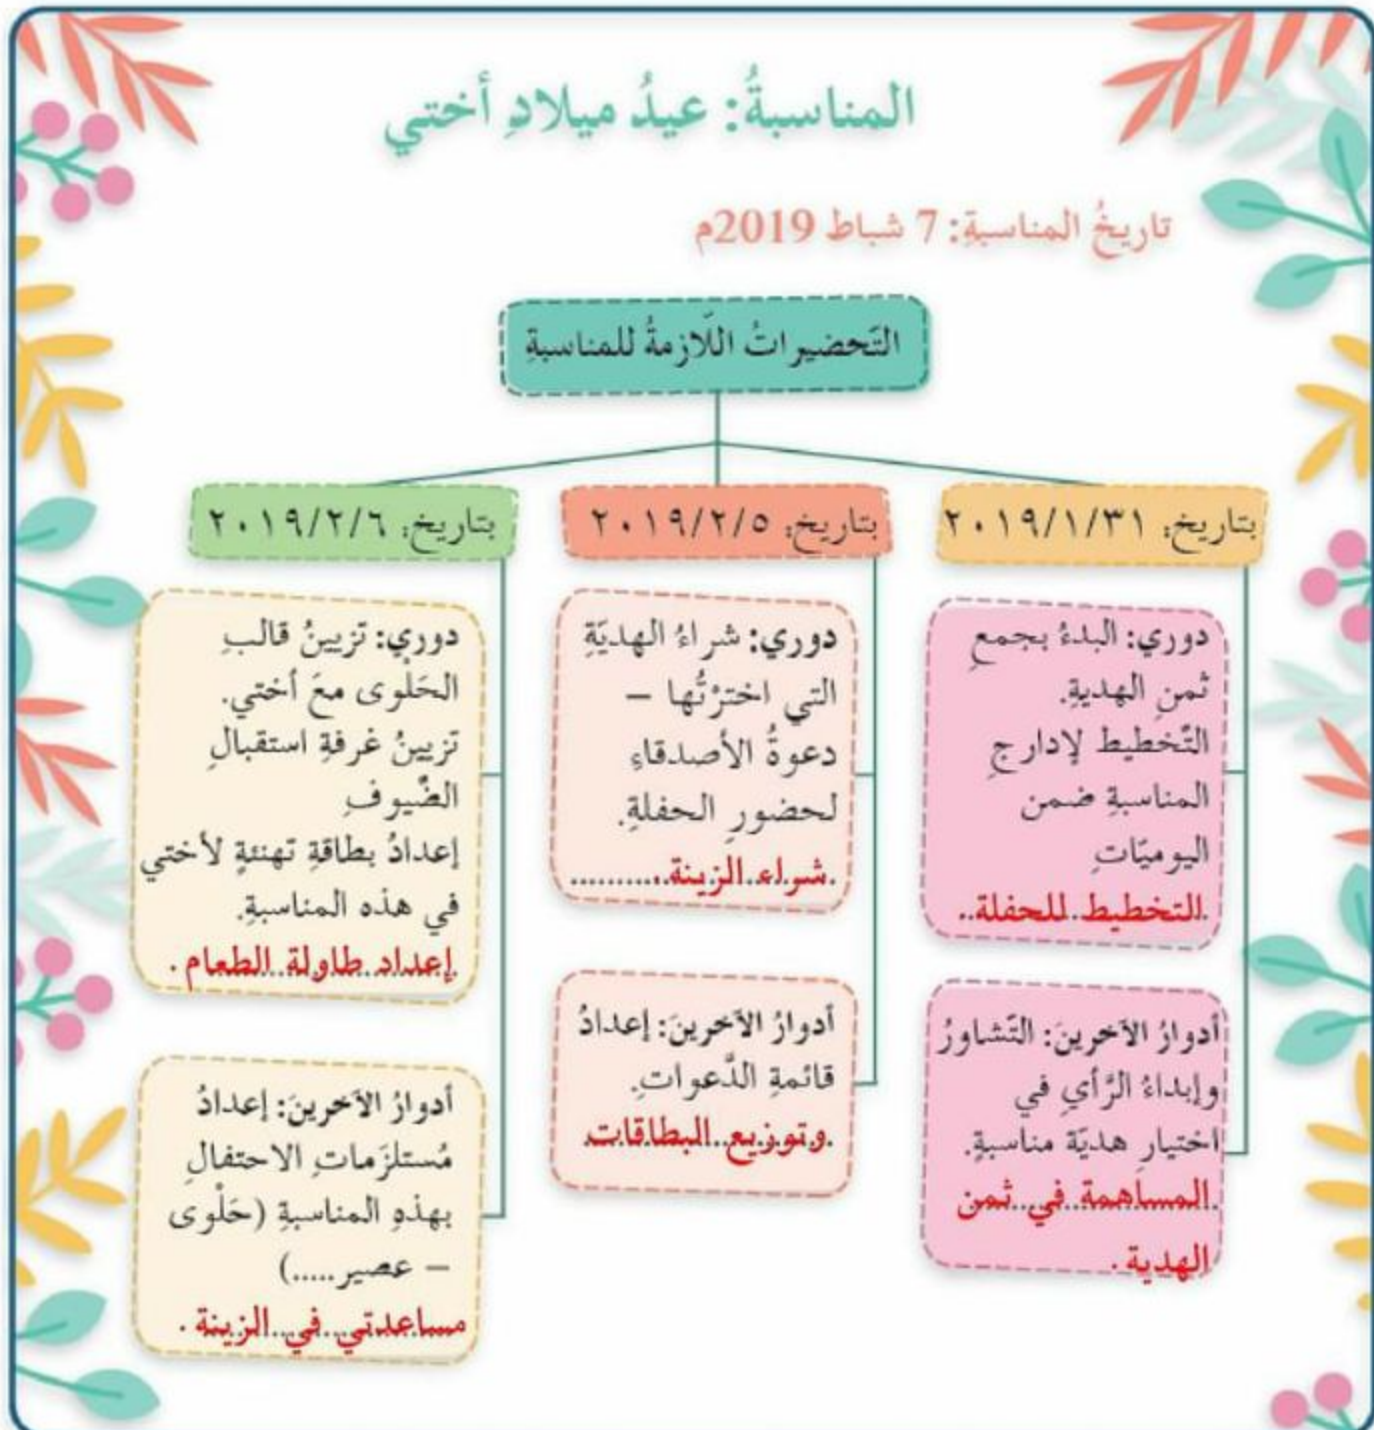 المناسبةُ: عيدُ ميلادِ أختي
تاريخُ المناسبةِ: 7 شباط 2019م
التّحضيراتُ اللّازمةُ للمناسبةِ
بتاريخ: ٢٠١٩/١/٣١
دوري: البدءُ بجمعِ
ثمنِ الهديةِ.
التّخطيط لإدارجِ
المناسبةِ ضمن
اليوميّاتِ
التخطيط للحفلة..
أدوارُ الآخرينَ: التّشاورُ
وإبداءُ الرَّأيِ في
اختيارِ هديّة مناسبةٍ.
المساهمة في ثمن
الهدية.
بتاريخ: ٢٠١٩/٢/٥
دوري: شراءُ الهديّةِ
التي اخترْتُها –
دعوةُ الأصدقاءِ
لحضورِ الحفلةِ.
شراء الزينة...........
أدوارُ الآخرينَ: إعدادُ
قائمةِ الدَّعواتِ.
وتوزيع البطاقات
بتاريخ: ٢٠١٩/٢/٦
دوري: تزيينُ قالبِ
الحَلْوى معَ أختي.
تزيينُ غرفةِ استقبالِ
الضّيوفِ
إعدادُ بطاقةِ تهنئةٍ لأختي
في هذه المناسبةِ.
إعداد طاولة الطعام.
أدوارُ الآخرينَ: إعدادُ
مُستلزَماتِ الاحتفالِ
بهذهِ المناسبةِ (حَلْوى
– عصير.....)
مساعدتي في الزينة.